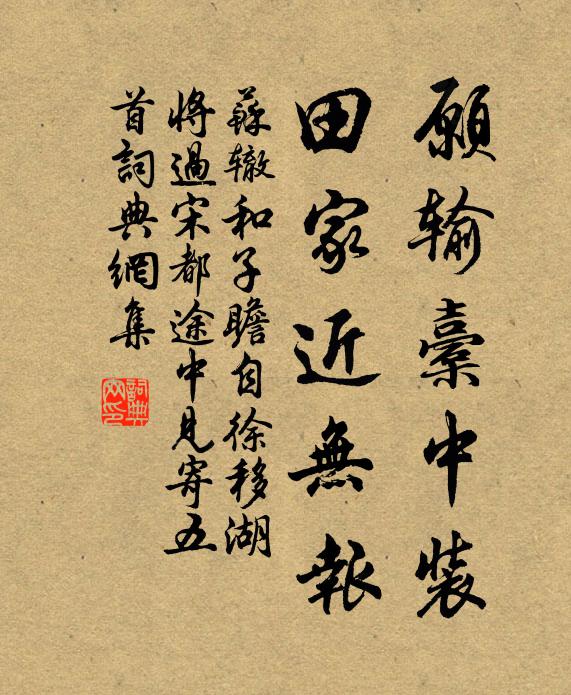 願输橐中裝
田家近無報
蘇辙和子瞻自徐移湖
將過宋都途中見寄五
首詞典網集
詞典
网印